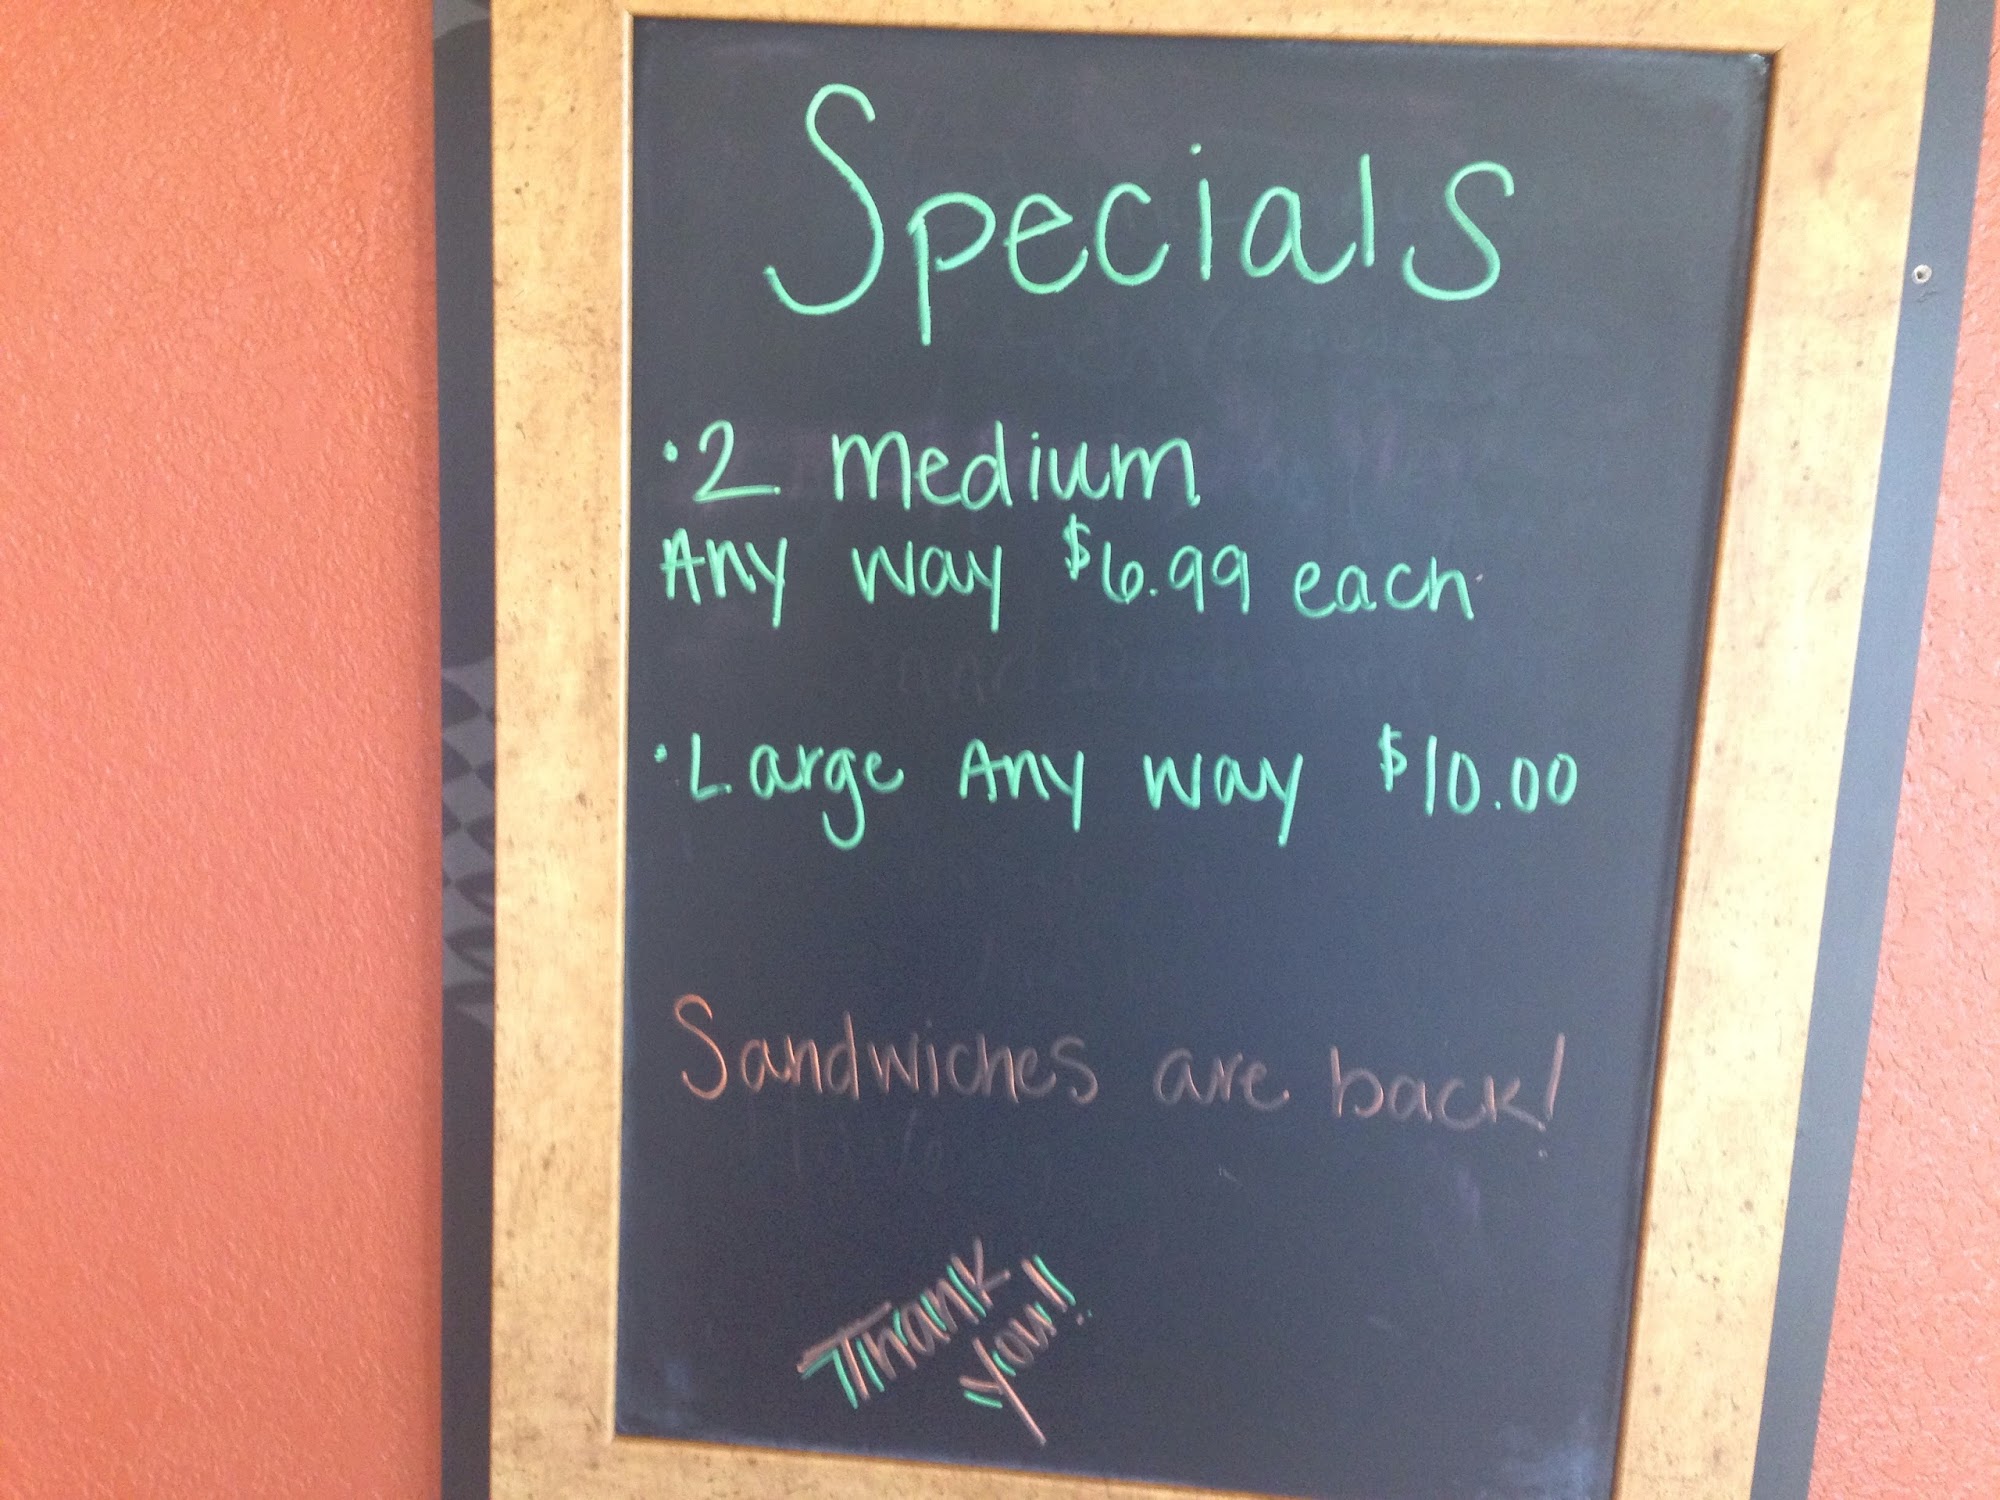 Specials
• 2 Medium
Any way $6.99 each
• Large Any way $10.00
Sandwiches are back!
Thank
you!!